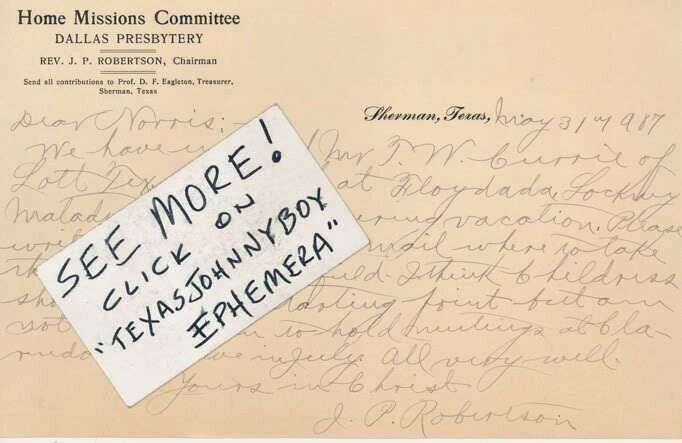 Home Missions Committee
DALLAS PRESBYTERY
REV. J. P. ROBERTSON, Chairman
Send all contributions to Prof. D. F. Eagleton, Treasurer,
Sherman, Texas
Sherman, Texas, May 31
Dear Norris:
We have Mr T. W. Currie of
Lott Tex at Floydada, Lockney
Matador during vacation. Please
mail where to take
I think Childress
starting point but am
not to hold meetings at Cla-
rendon in July. All very well.
Yours in Christ
J. P. Robertson
SEE MORE!
CLICK ON
"TEXASJOHNNYBOY
EPHEMERA"